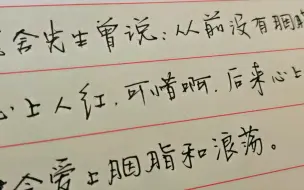 舍先生曾说:从前没有胭
心上人红.可惜啊.后来心上
会爱上胭脂和浪荡。